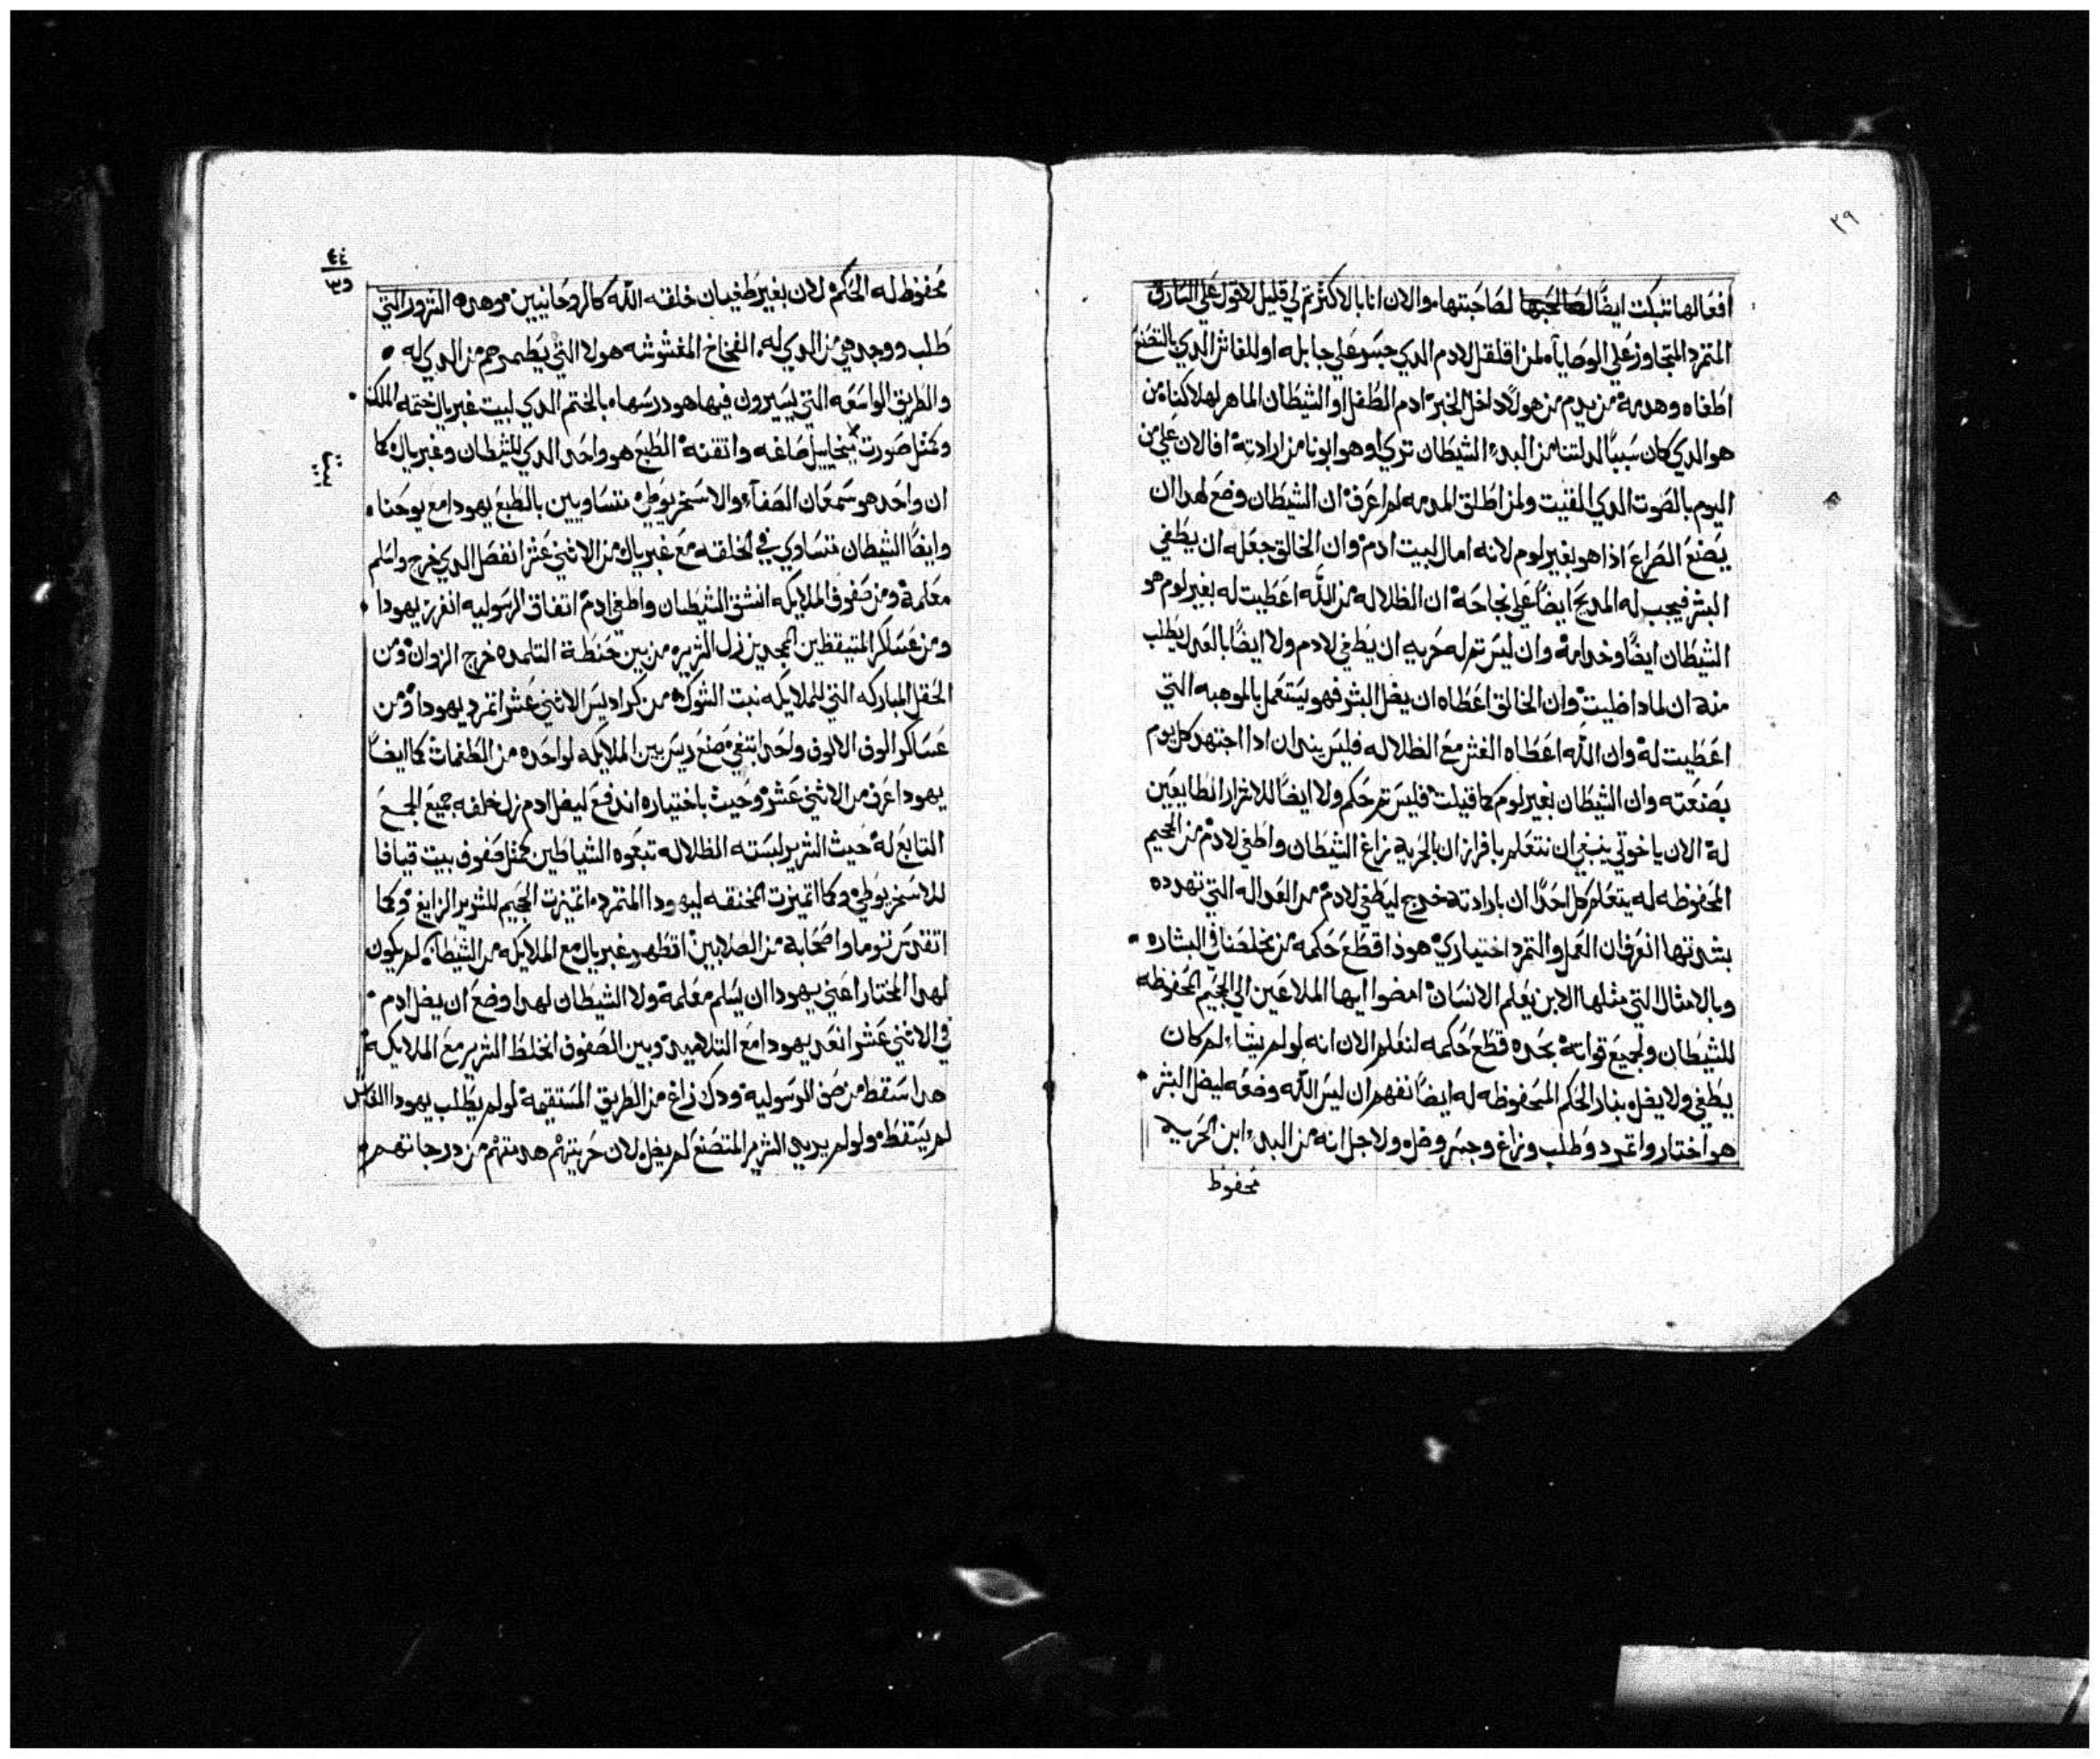 ٢٩
افعالها تتبكت ايضًا لصاحبتها والان انا بالاكثر تم لي قليل لاقول علي المارق
المتمرد المتجاوز علي الوصايا لمن اقلقل لادم الدي جسر علي جابله او للغاش الدي بالتصنع
اطغاه وهدمه من يدم من هولا داخل الخبر ادم الطفل او الشيطان الماهر لهلاكنا من
هو الدي كان سببًا لدلتنا من البدء الشيطان تري او هو ابونا من ارادته افالان علي من
اليوم بالصوت الدي القيت ولمن اطلق المدمه لو اعرف ان الشيطان وضع لهدا ان
يصنع الصراع اذا هو بغير لوم لانه امال لبيت ادم وان الخالق جعله ان يطغي
البشر فيجب له المديح ايضًا علي نجاحه ان الظلاله من الله اعطيت له بغير لوم هو
الشيطان ايضًا وخدامه وان ليس تم له حريه ان يطغي لادم ولا ايضًا بالعدل يطلب
منه ان لمادا ضليت وان الخالق اعطاه ان يضل البشر فهو يستعمل بالموهبه التي
اعطيت له وان الله اعطاه الغش مع الظلاله فليس بندان ادا اجتهد كل يوم
بصنعته وان الشيطان بغير لوم كما قيلت فليس تم حكم ولا ايضًا للاشرار الطايعين
له الان ياخوتي ينبغي ان نتعلم بافراز ان بالحريه زاغ الشيطان واطغي لادم من الجحيم
المحفوظه له يتعلم كل احدًا ان بارادته خرج ليطغي لادم من العداله التي تهدده
بشدتها انعرف ان العمل والتمرد اختياري هوذا قطع حكمه من مخلصنا في البشاره
وبالامثال التي مثلها الابن يعلم الانسان امضوا ايها الملاعين الي الجحيم المحفوظه
للشيطان ولجميع قواته بحده قطع حكمه لنعلم الان انه لو لم يشاء لم كان
يطغي ولا يضل بنار الحكم المحفوظه له ايضًا نفهم ان ليس الله وضعه ليضل البشر
هو اختار واتمرد وطلب وزاغ وجسر وضل ولاجل انه من البدء ابن الحريه
محفوظ
٤٤
محفوظ له الحكم لان بغير طغيان خلقه الله كالروحانيين وهده الشرور التي
طلب ووجد هي من الدي له الفخاخ المغشوشه هولا التي يطمرهم من الدي له
والطريق الواسعه التي يسيرون فيها هو درسها بالختم الدي لبيت غبريال ختمه الملك
وكمثل صورت ميخاييل صاغه واتقنه الطبع هو واحد الدي للشيطان وغبريال كما
ان واحد هو سمعان الصفا والاسخريوطي متساويين بالطبع يهودا مع يوحنا
وايضًا الشيطان متساوي في الخلقه مع غبريال من الاثني عشر انفصل الدي خرج واسلم
معلمه ومن صفوف الملايكه انشق الشيطان واطغي ادم اتفاق الرسوليه انفرز يهودا
ومن عساكر المتيقظين الممجدين زل الشرير من بين حنطة التلمده خرج الزوان ومن
الحقل المباركه التي للملايكه نبت الشوك من كراديس الاثني عشر اتمرد يهودا ومن
عساكر الوف الالوف ولحد ابتغي صنع ريس بين الملايكه لواحده من الطغمات كما ايضًا
يهودا عرف من الاثني عشر وحيث باختياره اندفع ليضل ادم زل خلفه جميع الجمع
التابع له حيث الشرير لبسته الظلاله تبعوه الشياطين كمثل صفوف بيت قيافا
للاسخريوطي وكما اتميزت المخنقه ليهودا المتمرد اتميزت الجحيم للشرير الزايغ وكما
اتقدس توما واصحابه من الصلابين اتطهر غبريال مع الملايكه من الشيطان لم يكون
لهدا المختار اعني يهودا ان يسلم معلمه ولا الشيطان لهدا وضع ان يضل ادم
في الاثني عشر انعد يهودا مع التلاميد وبين الصفوف انخلط الشرير مع الملايكه
هدا سقط من صف الرسوليه ودك زاغ من الطريق المستقيمه لو لم يطلب يهودا الغاش
لم يسقط ولو لم يريد الشرير المتصنع لم يضل لان حريتهم هدمتهم من درجاتهم